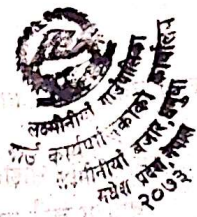 लक्ष्मीनीयाँ गाउँपालिका
गाउँ कार्यपालिकाको कार्यालय
लक्ष्मीनीयाँ बजार धनुषा
मधेश प्रदेश नेपाल
२०७३